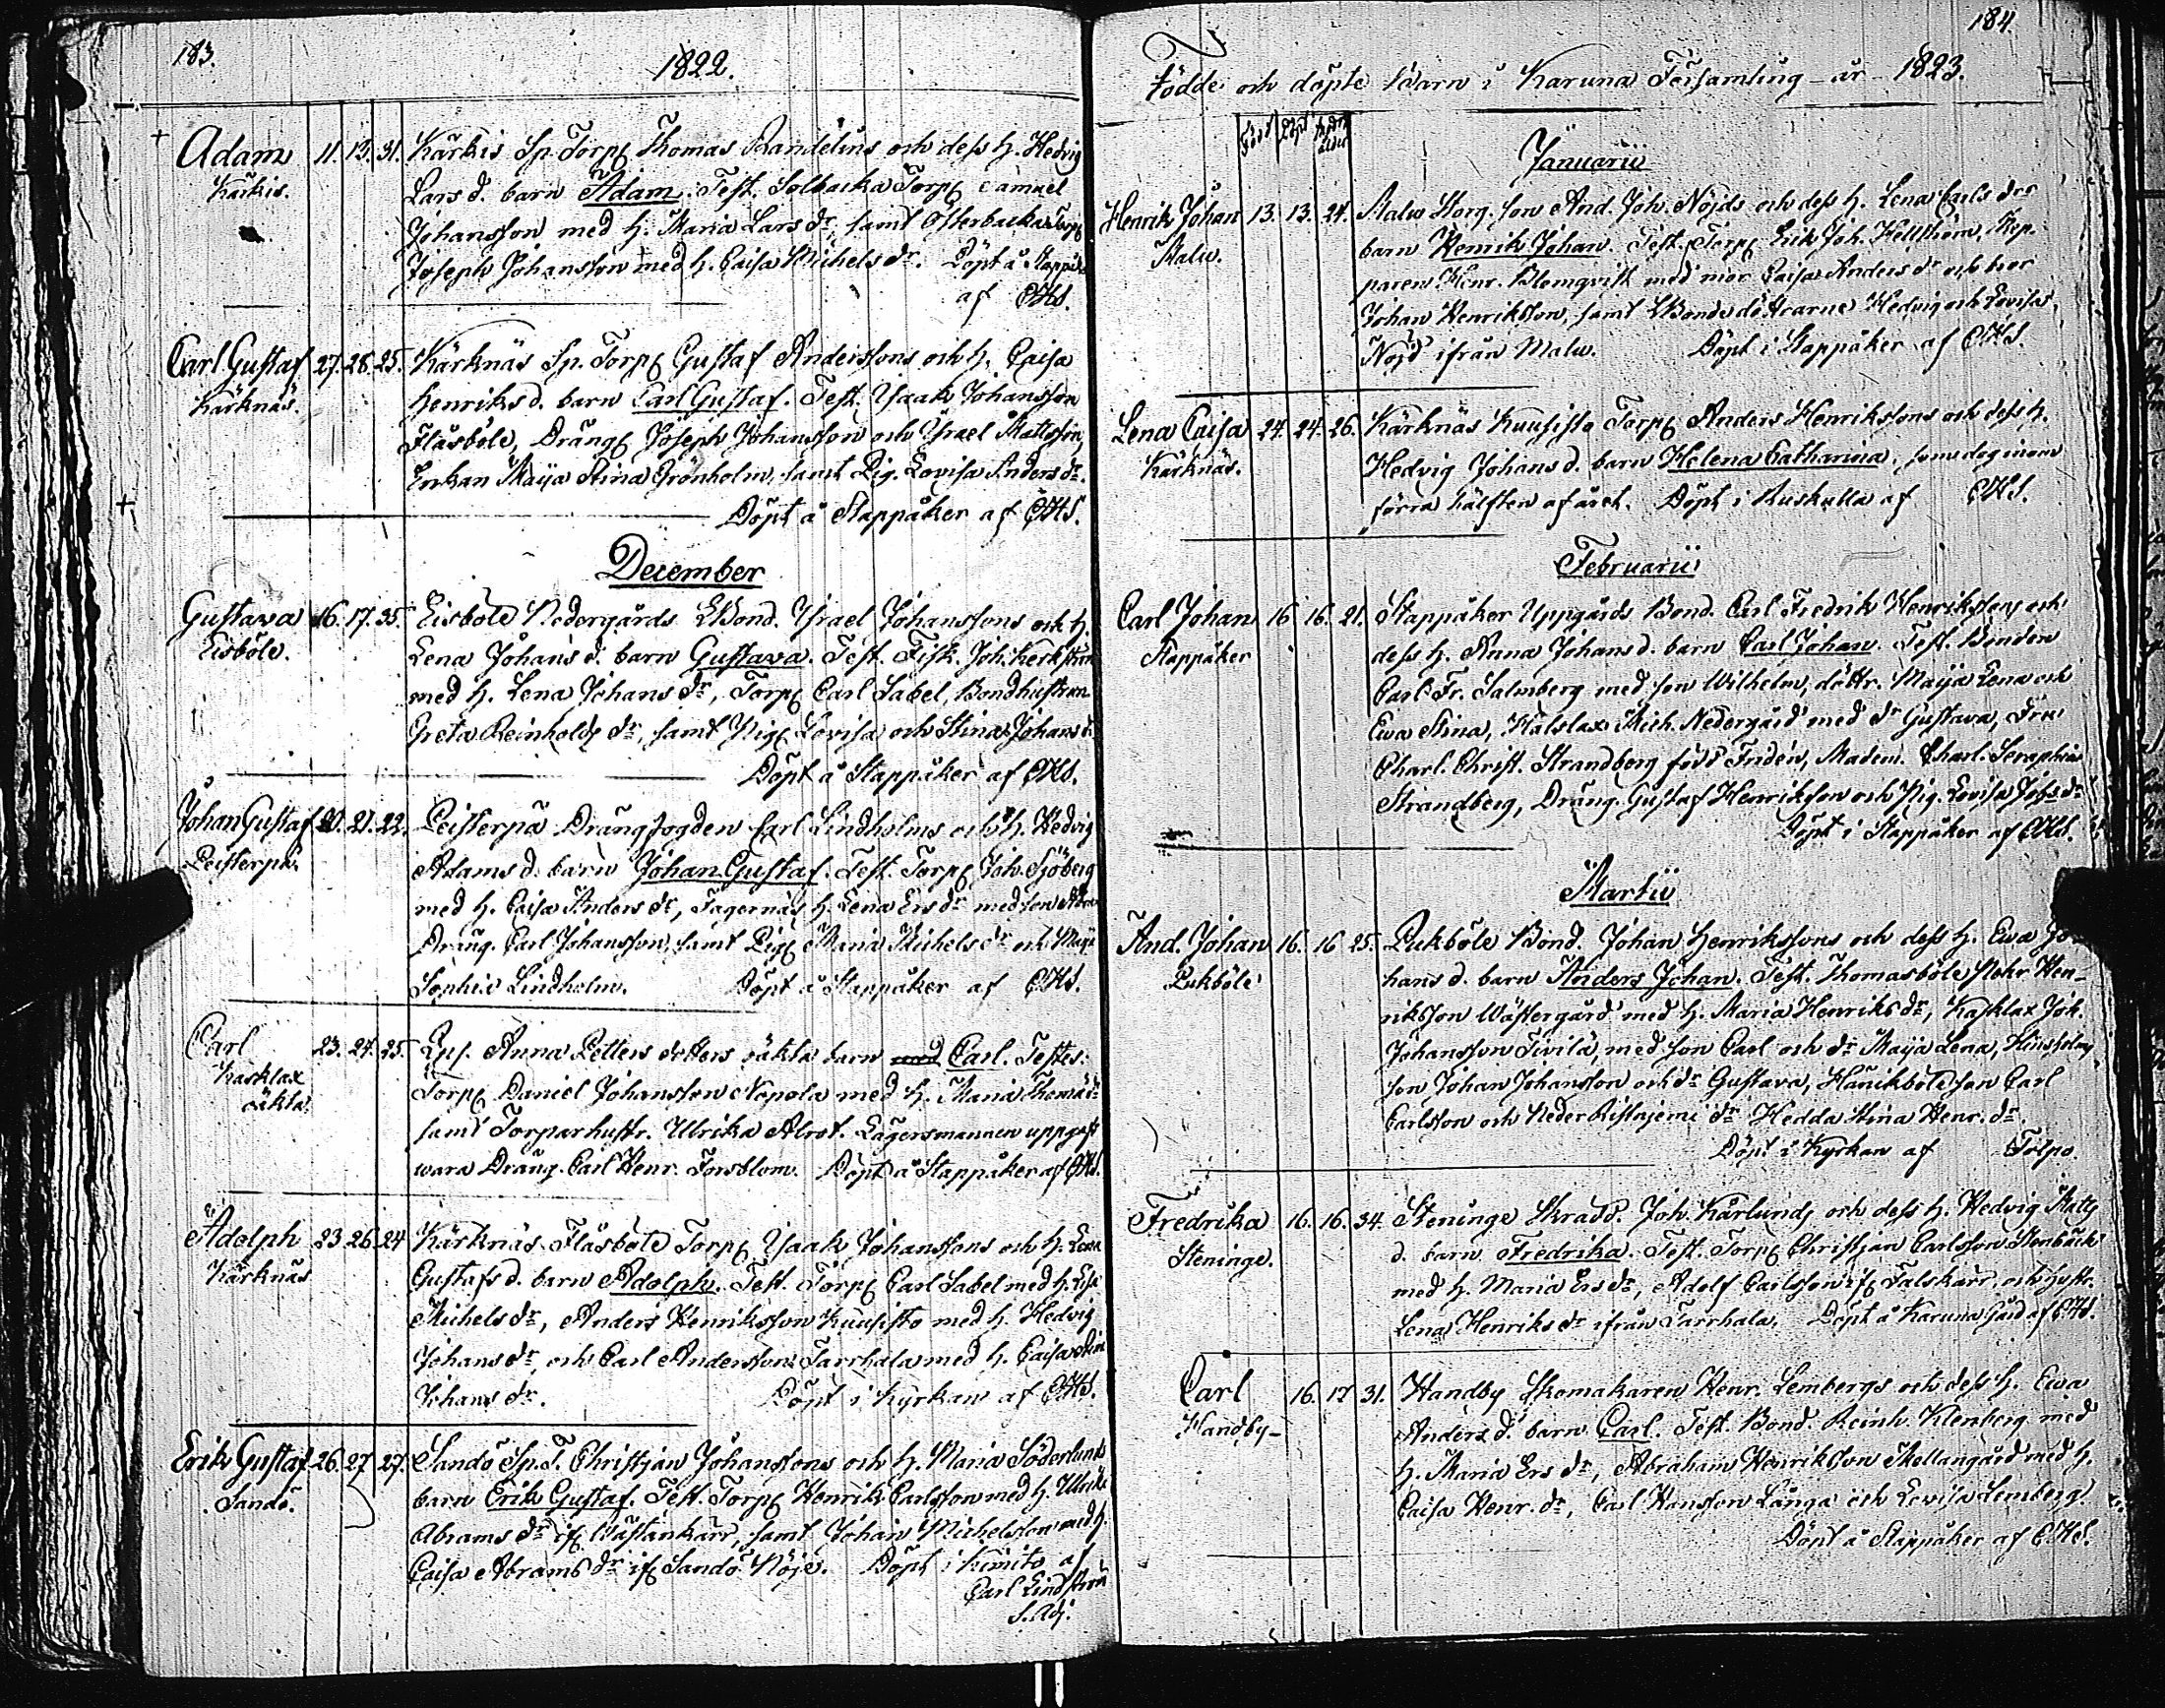 183.
1822.
Adam 11. 13. 31. Kärkis Sp. Torp Thomas Randelins och dess h. Hedvig
Kärkis. Lars d. barn Adam. Test. Solbacka Torp Samuel
Johansson med h. Maria Lars dr, samt Österbacka Torp
Joseph Johansson med h. Caisa Michels dr. Döpt å Stappåker
af CHS.
Carl Gustaf 27. 28. 25. Kärknäs Sp. Torp Gustaf Anderssons och h. Caisa
Kärknäs. Henriks d. barn Carl Gustaf. Test. Ysaak Johansson
Flåsböle, Dräng Joseph Johansson och Ysrael Mattsson,
Enkan Maija Stina Grönholm, samt Pig. Lovisa Anders dr.
Döpt å Stappåker af CHS.
December
Gustava 16. 17. 35. Eisböle Nedergårds Bond. Ysrael Johanssons och h.
Eisböle. Lena Johans d. barn Gustava. Test. Fisk. Joh.
med h. Lena Johans dr, Torp Carl Sabel, Bondhustrun
Greta Reinholds dr, samt Pig Lovisa och Stina Johans d.
Döpt å Stappåker af CHS.
Johan Gustaf 20. 21. 22. Peisterpä Drängfogden Carl Lindholms och h. Hedvig
Peisterpä. Adams d. barn Johan Gustaf. Test. Torp Joh. Sjöberg
med h. Caisa Anders dr, Fagernäs h. Lena Ers dr med son
Dräng. Carl Johansson, samt Pig Maria Michels dr och Maja
Sophia Lindholm. Döpt å Stappåker af CHS.
Carl 23. 24. 25. Anna Petters dotters oäkta barn med Carl. Testes:
Kasklax Torp Daniel Johansson Nopola med h. Maria Thomæ dr
oäkta samt Torparhustr. Ulrika Alrot. Lägersmannen uppgafs
wara Dräng. Carl Henr. Forsblom. Döpt å Stappåker af CHS.
Adolph 23 26. 24 Kärknäs Flåsböle Torp Ysaak Johanssons och h. Lena
Kärknäs Gustafs d. barn Adolph. Test. Torp Carl Sabel med h. Lisa
Michels dr, Anders Henriksson Kuusisto med h. Hedvig
Johans dr, och Carl Andersson Tarrhala med h. Caisa Stin
Johans dr. Döpt i Kyrkan af CHS.
Erik Gustaf 26. 27 27. Sandö Sp. T. Christian Johanssons och h. Maria Söderlunds
Sandö. barn Erik Gustaf. Test. Torp Henrik Carlsson med h. Ulrika
Abrams dr if Västankärr, samt Johan Michelsson med h.
Caisa Abrams dr if Sandö Nöje. Döpt i Kimito af
Carl Lindström
S. Adj.
184.
Födde och döpte Barn i Karuna Församling år 1823.
Född Döpt
Januarii
Henrik Johan 13. 13. 24. Malu Storg. son And. Joh. Nöjds och dess h. Lena Carls dr
Malu. barn Henrik Johan. Test. Torp Erik Joh. Hellström, Kop-
paren Henr. Blomqvist med mor Caisa Anders dr och bror
Johan Henriksson, samt Bondedöttrarne Hedvig och Lovisa
Nöjd ifrån Malu. Döpt i Stappåker af CHS.
Lena Caisa 24. 24. 26. Kärknäs Kuusisto Torp Anders Henrikssons och dess h.
Kärknäs. Hedvig Johans d. barn Helena Catharina, som dog inom
förra hälften af året. Döpt i Ruskulla af CHS.
Februarii
Carl Johan 16 16. 21. Stappåker Uppgårds Bond. Carl Fredrik Henrikssons och
Stappåker dess h. Anna Johans d. barn Carl Johan. Test. Bonden
Carl Fr. Salmberg med son Wilhelm, döttr. Maija Lena och
Ewa Stina, Hålslax Mich. Nedergård med dr Gustava, Fru
Charl. Christ. Strandberg född Fridén, Madem. Charl. Seraphina
Strandberg, Dräng. Gustaf Henriksson och Pig. Lovisa Johs dr
Döpt i Stappåker af CHS.
Martii
And. Johan 16. 16 25. Pukböle Bond. Johan Henrikssons och dess h. Ewa Jo-
Pukböle hans d. barn Anders Johan. Test. Thomasböle Hen-
riksson Wästergård med h. Maria Henriks dr, Kasklax Joh.
Johansson Tivila, med son Carl och dr Maija Lena,
son Johan Johansson och dr Gustava, Hanikböle son Carl
Carlsson och Neder Ristnjemi dr Hedda Stina Henr. dr.
Döpt i Kyrkan af Tolpo
Fredrika 16. 16. 34 Steninge Skrädd. Joh. Karlunds och dess h. Hedvig Matts
Steninge. d. barn Fredrika. Test. Torp Christian Carlsson Stenbäck
med h. Maria Ers dr, Adolf Carlsson if Falskärr, och hustr.
Lena Henriks dr ifrån Tarrhala. Döpt å Karuna Gård af CHS.
Carl 16. 17 31. Handby Skomakaren Henr. Lembergs och dess h. Ewa
Handby Anders d. barn Carl. Test. Bond. Reinh. Klenberg med
h. Maria Ers dr, Abraham Henriksson Mellangård med h.
Caisa Henr. dr, Carl Hansson Långa och Lovisa Lemberg.
Döpt å Stappåker af CHS.